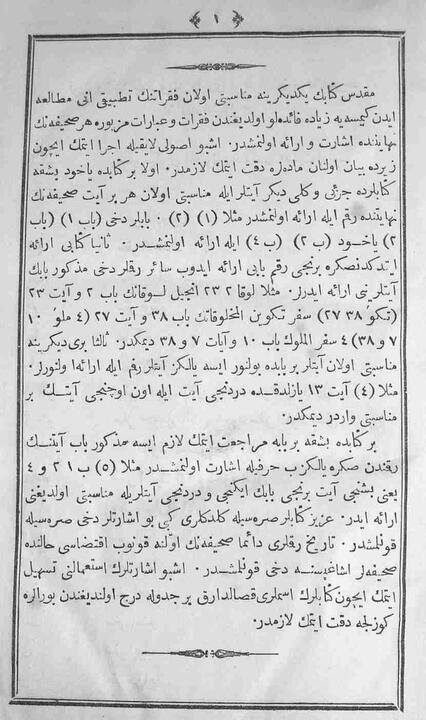 ١
مقدس كتابك يكديكرينه مناسبتى اولان فقراتنك تطبيقى انى مطالعه
ايدن كيمسه‌يه زياده فائده‌لو اولديغندن فقرات و عبارات مزبوره هر صحيفه‌نك
نهايتنده اشارت و ارائه اولنمشدر . اشبو اصولى لايقيله اجرا ايتمك ايچون
زيرده بيان اولنان ماده‌لره دقت ايتمك لازمدر . اولا بر كتابده ياخود بشقه
كتابلرده جزئى و كلى ديكر آيتلر ايله مناسبتى اولان هر بر آيت صحيفه‌نك
نهايتنده رقم ايله ارائه اولنمشدر مثلا (١) (٢) . بابلر دخى (باب ١) (باب
٢) ياخود (ب ٢) (ب ٤) ايله ارائه اولنمشدر . ثانيا كتابى ارائه
ايتدكدنصكره برنجى رقم بابى ارائه ايدوب سائر رقلر دخى مذكور بابك
آيتلرينى ارائه ايدرلر . مثلا لوقا ٢ ٢٣ انجيل لوقانك باب ٢ و آيت ٢٣
(تكو ٣٨ ٢٧) سفر تكوين المخلوقاتك باب ٣٨ و آيت ٢٧ (٤ ملو ١٠
٧ و ٣٨) ٤ سفر الملوك باب ١٠ و آيات ٧ و ٣٨ ديمكدر . ثالثا برى ديكرينه
مناسبتى اولان آيتلر بر بابده بولنور ايسه يالكز آيتلر رقم ايله ارائه اولنورلر .
مثلا (٤) آيت ١٣ يازلدقده دردنجى آيت ايله اون اوچنجى آيتك بر
مناسبتى واردر ديمكدر .
بر كتابده بشقه بر بابه مراجعت ايتمك لازم ايسه مذكور باب آيتنك
رقندن صكره يالكز ب حرفيله اشارت اولنمشدر مثلا (٥) ب ١ ٢ و ٤
يعنى بشنجى آيت برنجى بابك ايكنجى و دردنجى آيتلريله مناسبتى اولديغنى
ارائه ايدر . عزيز كتابلر صره‌سيله كلدكلرى كبى بو اشارتلر دخى صره‌سيله
قونلمشدر . تاريخ رقلرى دائما صحيفه‌نك اولنه قونوب اقتضاسى حالنده
صحيفه‌لر اشاغيسنه دخى قونلمشدر . اشبو اشارتلرك استعمالنى تسهيل
ايتمك ايچون كتابلرك اسملرى قصالدارق بر جدوله درج اولنديغندن بورالره
كوزلجه دقت ايتمك لازمدر .